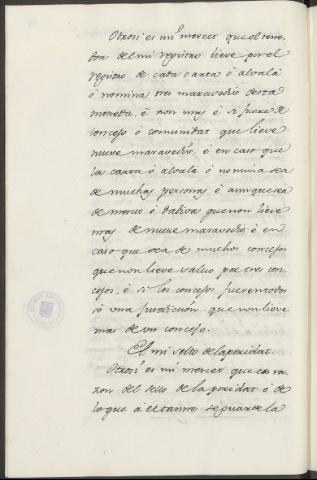 Otrosi es mi merced que el tene-
dor del mi registro lieve por el
registro de cada carta ó alvalá
ó nomina tres maravedis desta
moneda, é non mas é si fuere de
concejo ó comunidat que lieve
nueve maravedis, é en caso que
la carta ó alvalá ó nomina sea
de muchas personas é aunque sea
de merced ó dadiva que non lieve
mas de nueve maravedis é en
caso que sea de muchos concejos
que non lieve salvo por tres con-
cejos, é si los concejos fueren todos
só una juridicion que non lieve
mas de un concejo.
El mi sello de la poridat.
Otrosi es mi merced que en ra-
zon del sello de la poridat é de
lo que á él tanne se guarde la